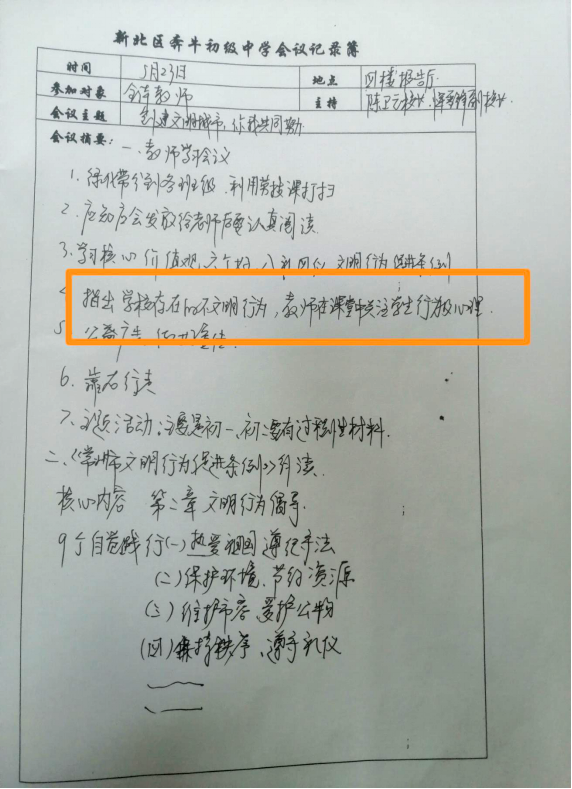 新北区奔牛初级中学会议记录簿
时间 5月23日 地点 四楼报告厅
参加对象 全体教师 主持 陈卫元校长、
会议主题 创建文明城市,你我共同
会议摘要: 一、教师学习会议
1、绿化带分到各班级、利用劳技课打扫
2、应知应会发放给老师后要认真阅读
3、学习核心价值观、六个好、八礼四仪、文明行为促进条例
4、指出学校存在的不文明行为,教师在课堂中关注学生行为及心理.
5、公益广告
6、靠右行走
7、主题活动:主要是初一、初二要有过程性材料.
二、《常州市文明行为促进条例》解读
核心内容 第二章 文明行为倡导.
9个自觉践行(一)热爱祖国 遵纪守法
(二)保护环境、节约资源
(三)维护市容、爱护公物
(四)保持秩序、遵守礼仪